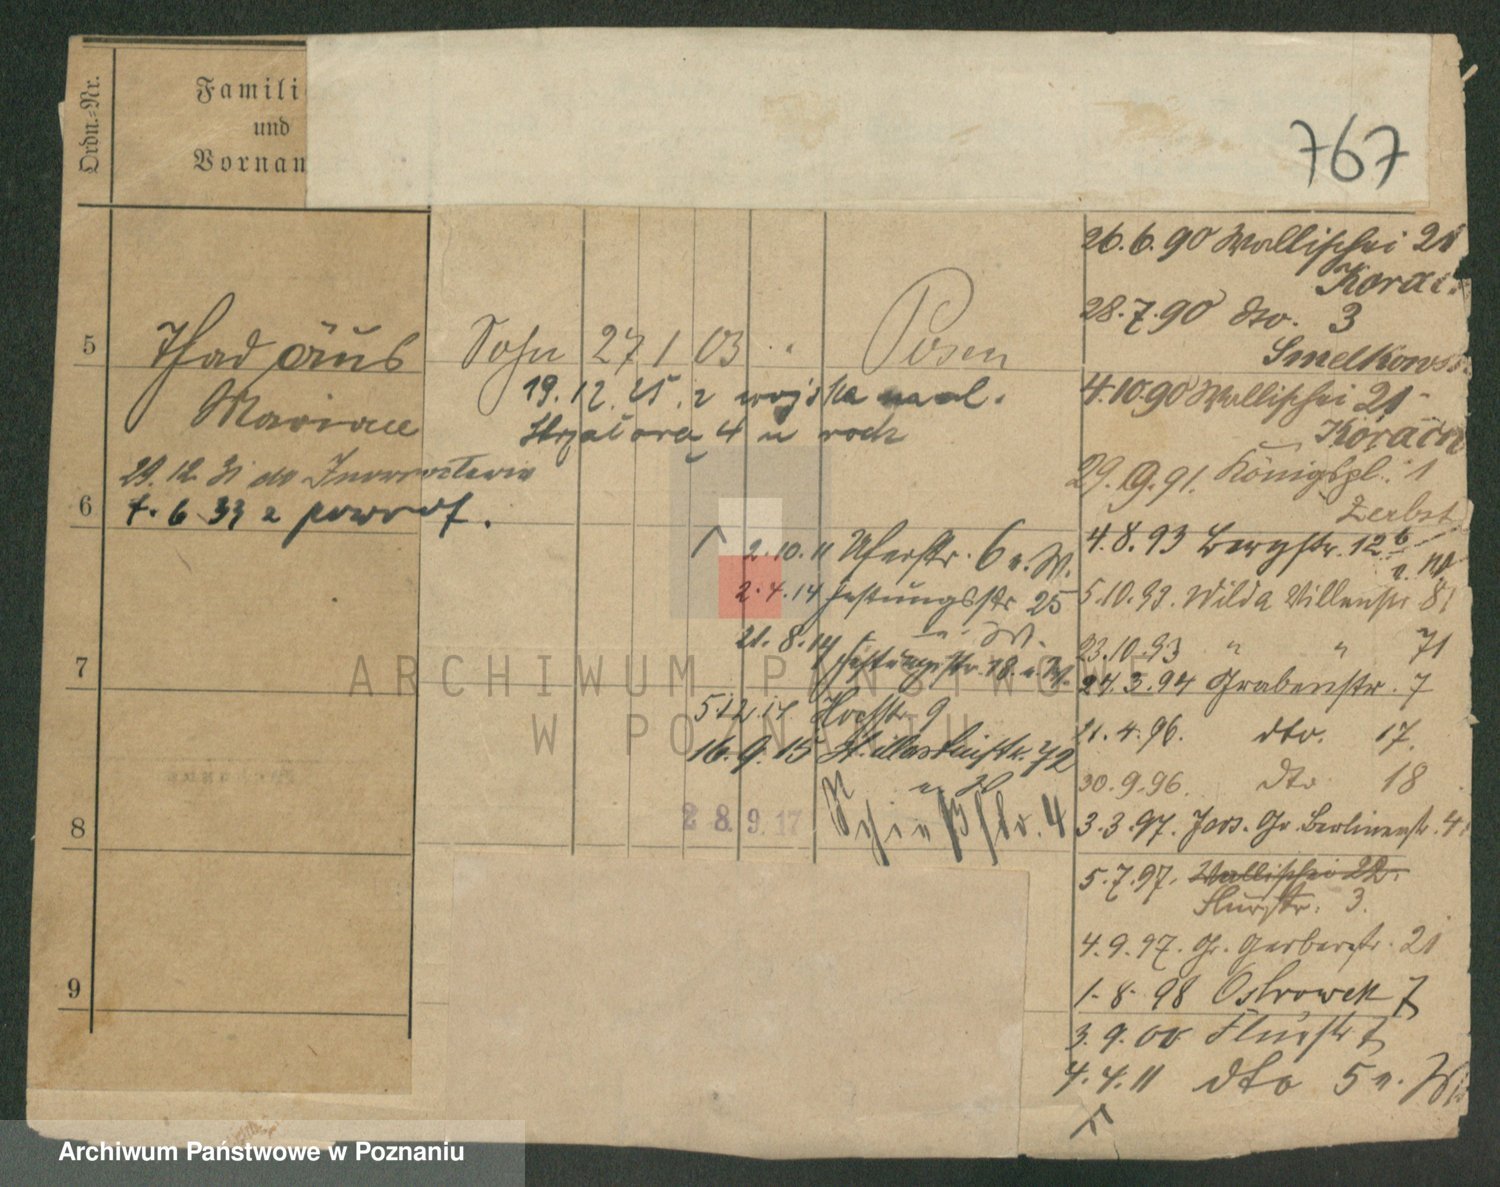 Ordn.=Nr.
Famili
und
Vornam
767
5
Thadäus
Marian
Sohn 27 1 03 Posen
19.12.25. z wojska naal.
4 u
29.12.31 do Inowrocławia
6
7. 6 33 z powrot.
2.10.11 Uferstr. 6 u. W.
2.4.14 Festungsstr 25
u. W.
21.8.14 Festungsstr. 18. u. W.
7
5.12.14 Hochstr. 9
16.9.15 72
u W
8
28.9.17 Schießstr. 4
9
26.6.90 Wallischei 21
28.7.90 dto. 3
Smelkows
4.10.90 Wallischei 21
29.9.91. Königspl. 1
Zerbst
4.8.93 Bergstr. 12b
5.10.93. Wilda Villenstr 81
23.10.93 " " 71
24.3.94 Grabenstr. 7
21.4.96. dto. 17.
30.9.96. dto 18
3.3.97. Jers. Gr. Berlinerstr. 41
5.7.97. Wallischei 22.
Flurstr. 3.
4.9.97. Gr. Gerberstr. 21
1.8.98 Ostrowek 7
3.9.00 Flurstr 7
4.4.11 dto 5 u. W
ARCHIWUM PAŃSTWOWE
W POZNANIU
Archiwum Państwowe w Poznaniu